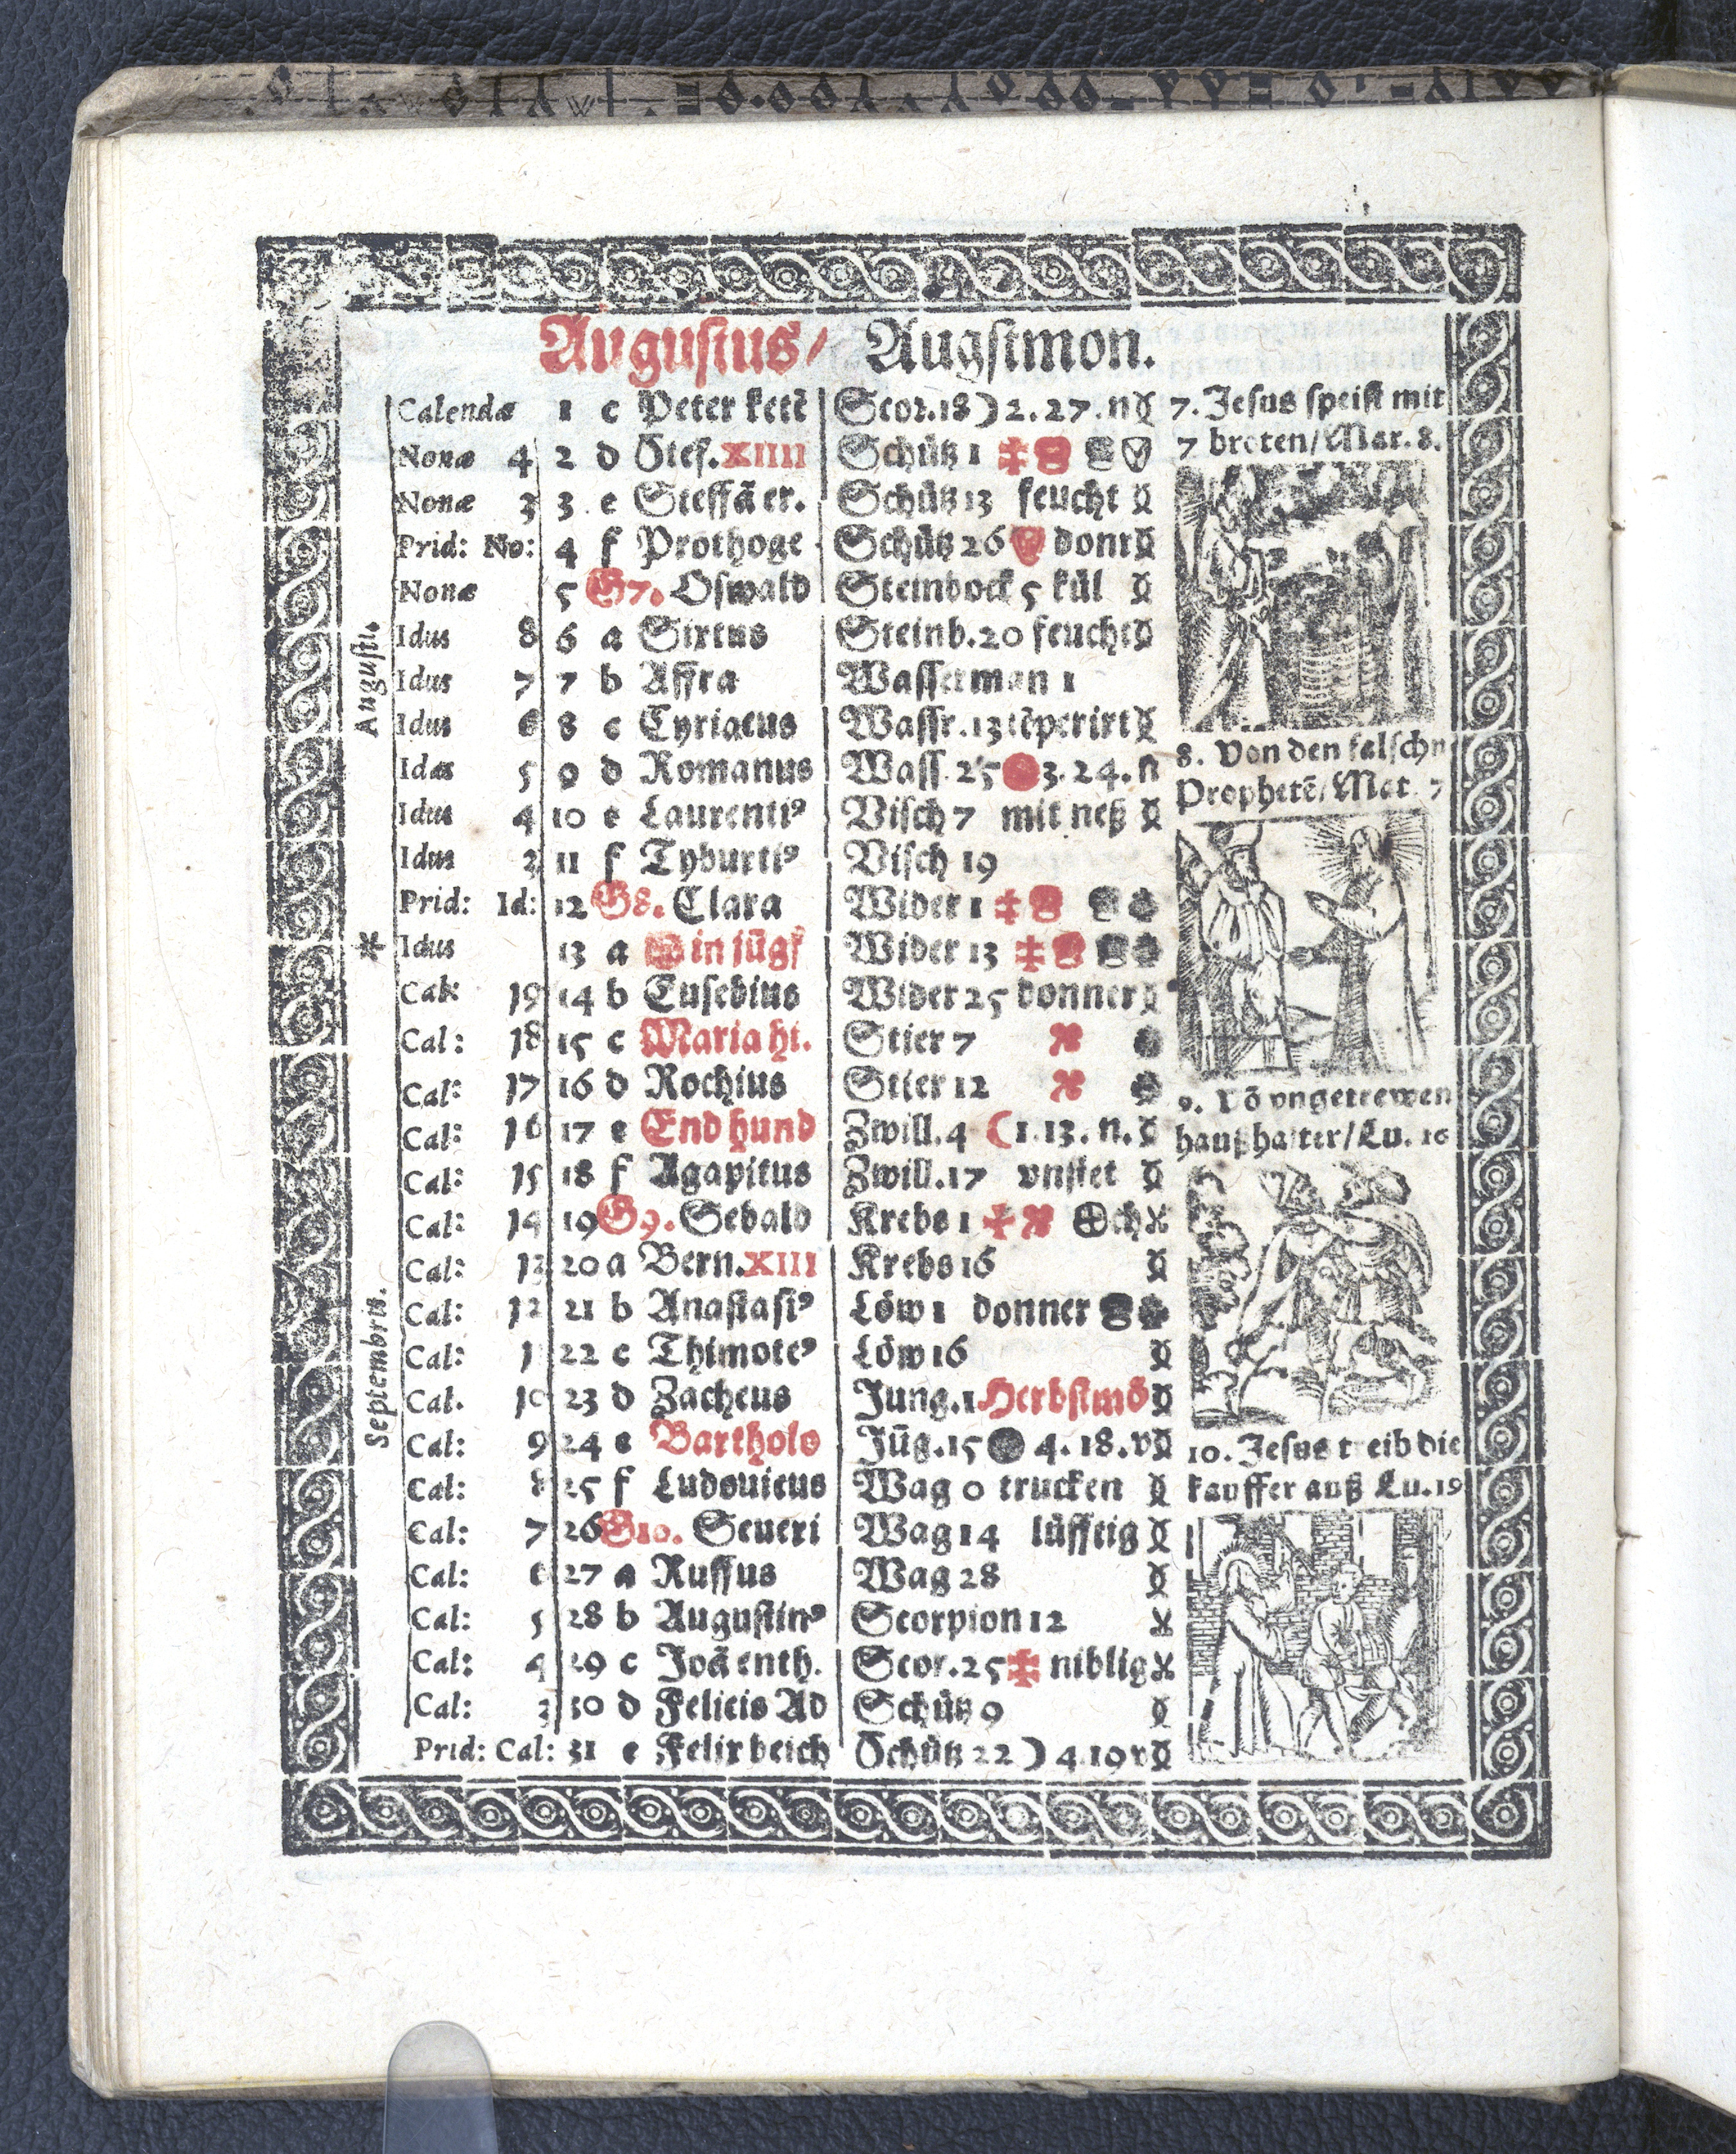 Augustus/ Augstmon.
Calendæ 1 c Peter ketẽ Scor.18 ☽ 2.27.n
Nonæ 4 2 d Stef. XIIII Schütz 1
Nonæ 3 3 e Steffã er. Schütz 13 feucht
Prid: No: 4 f Prothoge Schütz 26 donr
Nonæ 5 G7. Oswald Steinbock 5 kül
Idus 8 6 a Sixtus Steinb.20 feucht
Idus 7 7 b Affra Wasserman 1
Idus 6 8 c Cyriacus Wassr.13 tẽperirt
Idus 5 9 d Romanus Wass.25 3.24.n
Idus 4 10 e Laurentiꝰ Visch 7 mit neß
Idus 3 11 f Tyburtiꝰ Visch 19
Prid: Id: 12 G8. Clara Wider 1
* Idus 13 a in jũgf Wider 13
Cal: 19 14 b Eusebius Wider 25 donner
Cal: 18 15 c Maria hi. Stier 7
Cal: 17 16 d Rochius Stier 12
Cal: 16 17 e End hund Zwill.4 ☾ 1.13.n.
Cal: 15 18 f Agapitus Zwill.17 vnstet
Cal: 14 19 G9. Sebald Krebs 1 ch
Cal: 13 20 a Bern. XIII Krebs 16
Cal: 12 21 b Anastasiꝰ Löw 1 donner
Cal: 22 c Thimoteꝰ Löw 16
Cal. 10 23 d Zacheus Jung.1 Herbstmõ
Cal: 9 24 e Bartholo Jũg.15 4.18.v
Cal: 8 25 f Ludouicus Wag 0 trucken
Cal: 7 26 G10. Seueri Wag 14 lüfftig
Cal: 6 27 a Ruffus Wag 28
Cal: 5 28 b Augustinꝰ Scorpion 12
Cal: 4 29 c Joã enth. Scor.25 niblig
Cal: 3 30 d Felicis Ad Schütz 9
Prid: Cal: 31 e Felix beich Schütz 22 ☽ 4.19 v
Augusti.
Septembris.
7. Jesus speist mit
7 broten/Mar.8.
8. Von den falschn
Prophetẽ/Mat.7
9. Võ vngetrewen
haußhalter/Lu.16
10. Jesus treib die
kauffer auß Lu.19